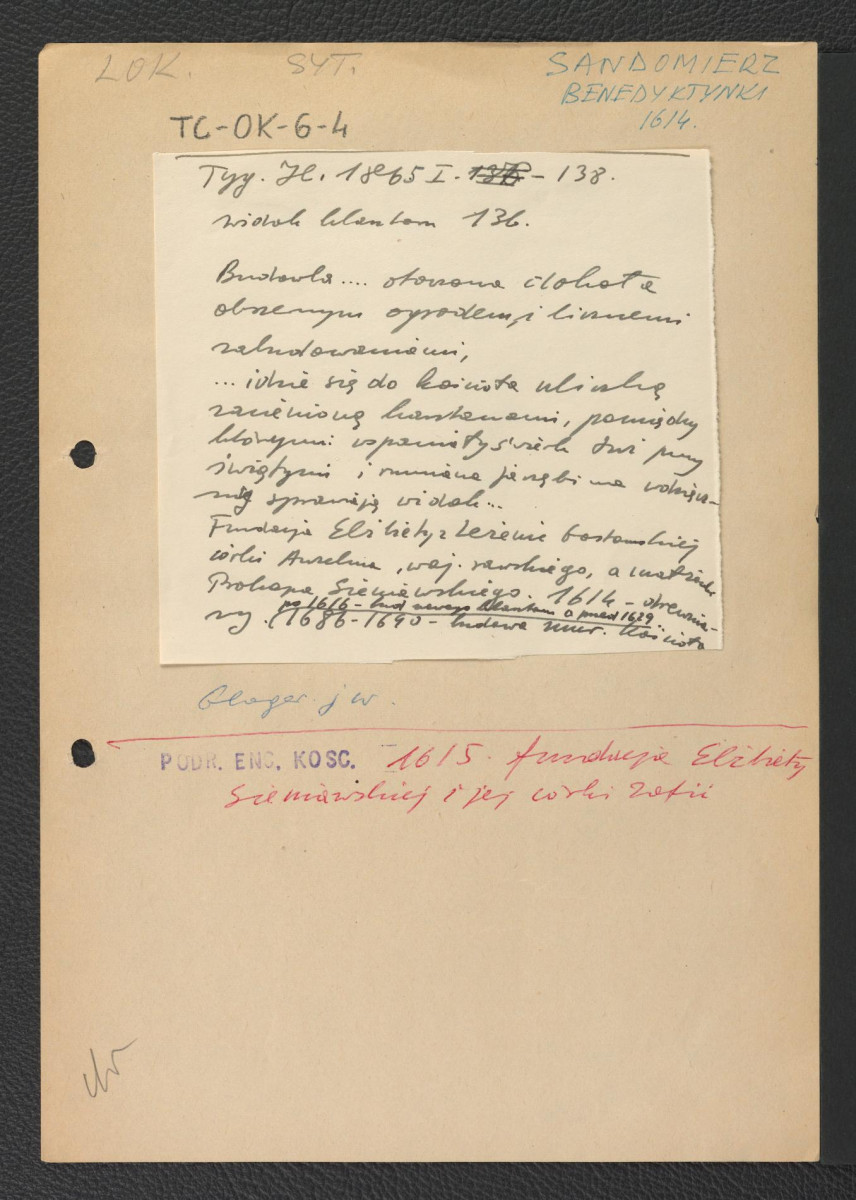 LOK. SYT. SANDOMIERZ
BENEDYKTYNKI
1614.
TC-OK-6-4
Tyg. Il. 1865 I. - 138.
widok klasztoru 136.
Budowla.... otoczona dokoła
obszernym ogrodem, i licznemi
zabudowaniami,
... idzie się do kościoła uliczką
zacienioną kasztanami, pomiędzy
którymi wspaniały świerk tuż przy
świątyni i rumiana jarzębina wdzięcz-
ny sprawiają widok...
Fundacja Elżbiety z Leżenic Gostomskiej
córki Anzelma, woj. rawskiego, a matki
Prokopa Sieniawskiego. 1614 - drewnia-
po 1616 - bud nowego klasztoru a przed 1629
ny. (1686-1690 - budowa murow. kościoła
Gloger. j w.
PODR. ENC. KOSC. 1615. fundacja Elżbiety
Sieniawskiej i jej córki Zofii